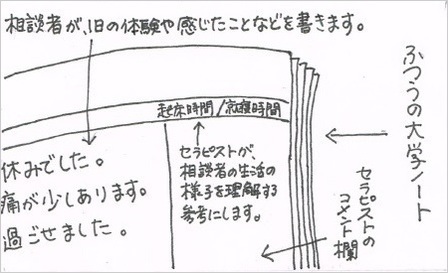 相談者が、1日の体験や感じたことなどを書きます。
起床時間/就寝時間
休みでした。
痛が少しあります。
過ごせました。
セラピストが、
相談者の生活の
様子を理解する
参考にします。
ふつうの大学ノート
セラピストの
コメント欄